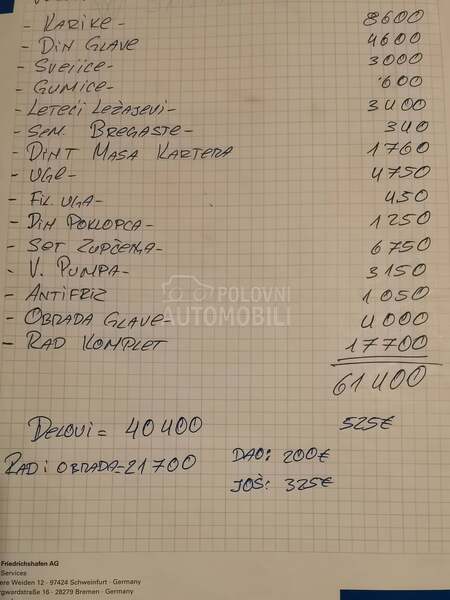 - KARIKE- 8600
- DIN GLAVE 4600
- SVEĆICE- 3000
- GUMICE- 600
- LETEĆI LEŽAJEVI- 3400
- SEM. BREGASTE- 340
- DINT MASA KARTERA 1760
- ULJE- 4750
- FIL. ULJA- 450
- DIN POKLOPCA- 1250
- SET ZUPČENJA- 6750
- V. PUMPA- 3150
- ANTIFRIZ 1050
POLOVNI
AUTOMOBILI
- OBRADA GLAVE- 4000
- RAD KOMPLET 17700
61400
DELOVI= 40400 525€
RAD I OBRADA=21700 DAO: 200€
JOŠ: 325€
Friedrichshafen AG
Services
ere Weiden 12 · 97424 Schweinfurt · Germany
rgwardstraße 16 · 28279 Bremen · Germany